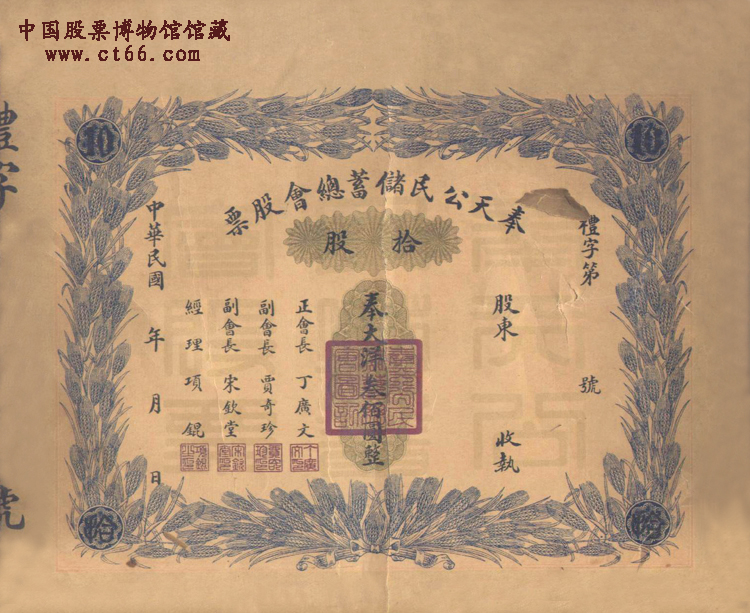 中国股票博物馆馆藏
www.ct66.com
奉天公民儲蓄總會股票
拾股
禮字第 號
股東 收執
奉大洋叁佰圓整
正會長 丁廣文
副會長 賈奇珍
副會長 宋欽堂
經理 項錕
中華民國 年 月 日
10
10
拾
拾
禮字
號